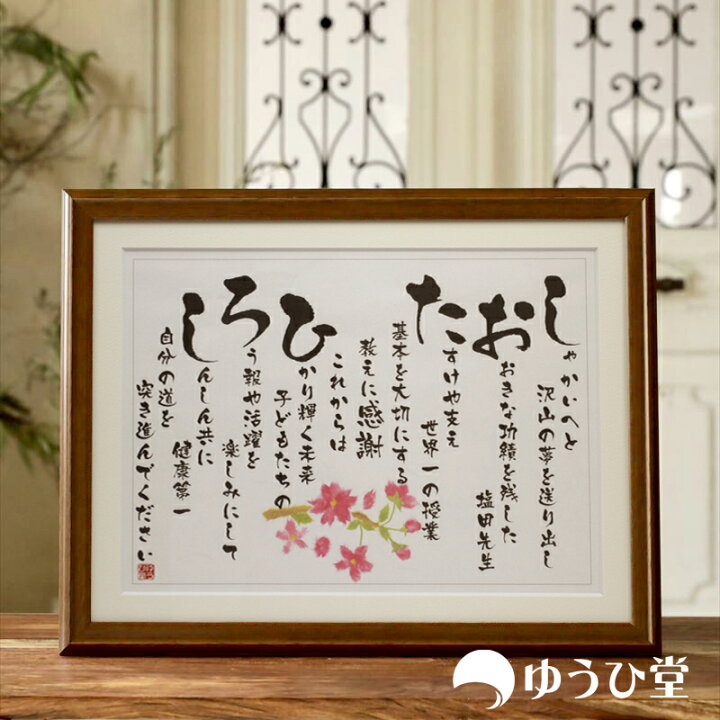 しゃかいへと
沢山の夢を送り出し
おおきな功績を残した
塩田先生
たすけや支え
世界一の授業
基本を大切にする
教えに感謝
これからは
ひかり輝く未来
子どもたちの
ろう報や活躍を
楽しみにして
しんしん共に
健康第一
自分の道を
突き進んでください
ゆうひ堂